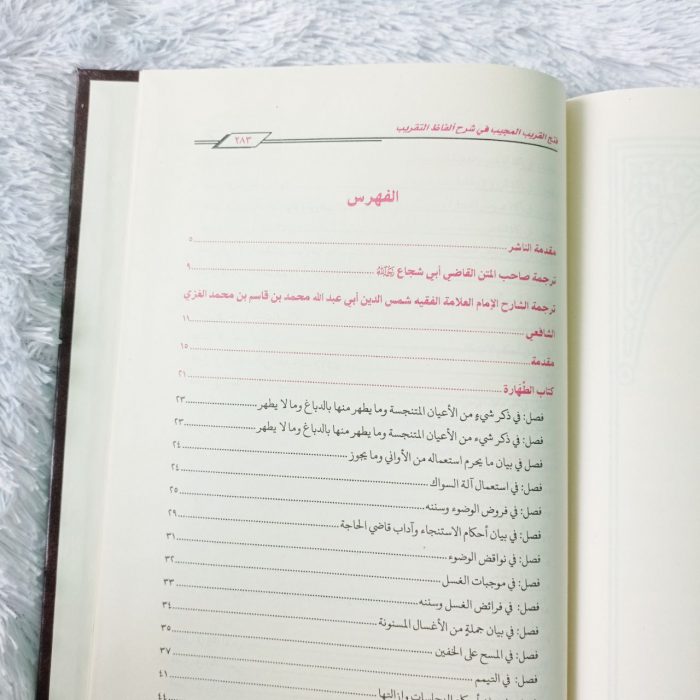 فتح القريب المجيب في شرح ألفاظ التقريب
٢٨٣
الفهرس
مقدمة الناشر ٥
ترجمة صاحب المتن القاضي أبي شجاع رحمه الله ٩
ترجمة الشارح الإمام العلامة الفقيه شمس الدين أبي عبد الله محمد بن قاسم بن محمد الغزي
الشافعي ١١
مقدمة ١٥
كتاب الطَّهارة ٢١
فصل: في ذكر شيءٍ من الأعيان المتنجسة وما يطهر منها بالدباغ وما لا يطهر ٢٣
فصل: في ذكر شيء من الأعيان المتنجسة وما يطهر منها بالدباغ وما لا يطهر ٢٣
فصل في بيان ما يحرم استعماله من الأواني وما يجوز ٢٤
فصل: في استعمال آلة السواك ٢٤
فصل: في فروض الوضوء وسننه ٢٥
فصل: في بيان أحكام الاستنجاء وآداب قاضي الحاجة ٢٩
فصل: في نواقض الوضوء ٣١
فصل: في موجبات الغسل ٣٢
فصل: في فرائض الغسل وسننه ٣٣
فصل: في بيان جملةٍ من الأغسال المسنونة ٣٤
فصل: في المسح على الخفين ٣٥
فصل: في التيمم ٣٧
٤١
النجاسات وإزالتها ٤٤